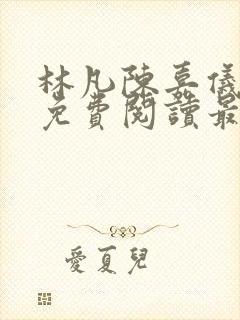 林凡陳嘉儀
免費閱讀最
愛夏兒